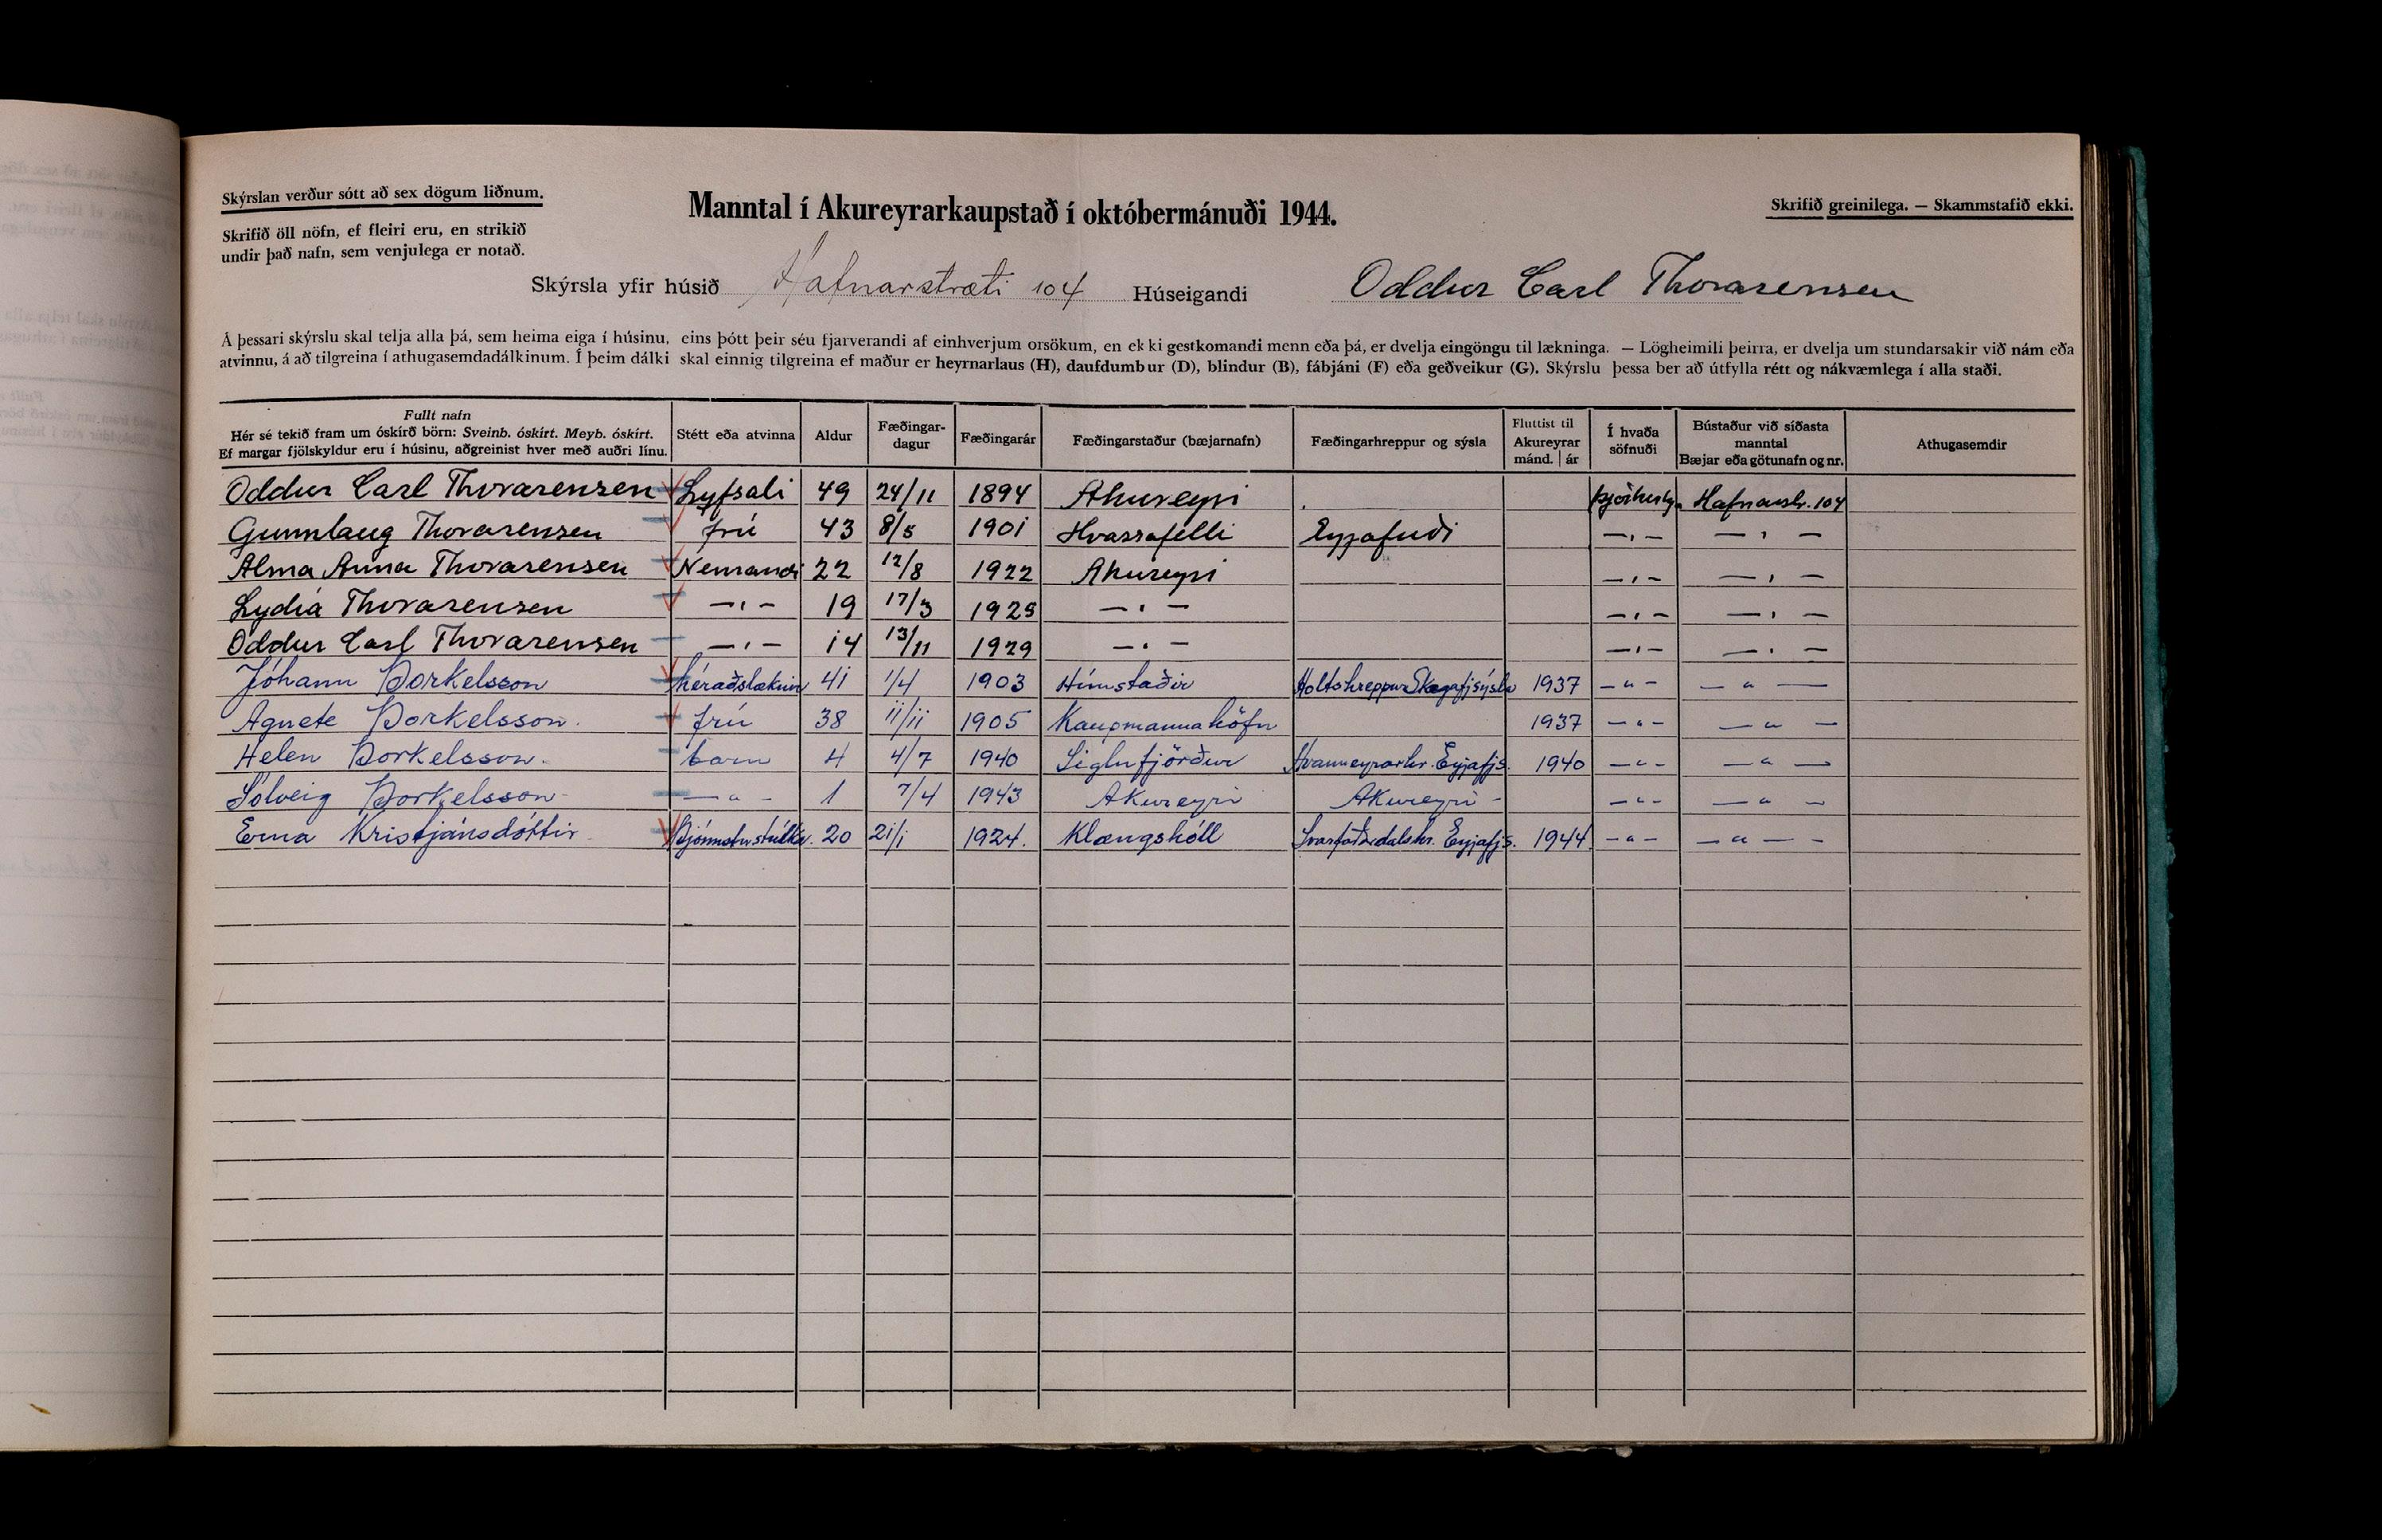 Skýrslan verður sótt að sex dögum liðnum.
Manntal í Akureyrarkaupstað í októbermánuði 1944.
Skrifið greinilega. — Skammstafið ekki.
Skrifið öll nöfn, ef fleiri eru, en strikið
undir það nafn, sem venjulega er notað.
Skýrsla yfir húsið Hafnarstræti 104 Húseigandi Oddur Carl Thorarensen
Á þessari skýrslu skal telja alla þá, sem heima eiga í húsinu, eins þótt þeir séu fjarverandi af einhverjum orsökum, en ekki gestkomandi menn eða þá, er dvelja eingöngu til lækninga. — Lögheimili þeirra, er dvelja um stundarsakir við nám eða
atvinnu, á að tilgreina í athugasemdadálkinum. Í þeim dálki skal einnig tilgreina ef maður er heyrnarlaus (H), daufdumbur (D), blindur (B), fábjáni (F) eða geðveikur (G). Skýrslu þessa ber að útfylla rétt og nákvæmlega í alla staði.
Fullt nafn
Hér sé tekið fram um óskírð börn: Sveinb. óskírt. Meyb. óskírt.
Ef margar fjölskyldur eru í húsinu, aðgreinist hver með auðri línu.
Stétt eða atvinna
Aldur
Fæðingar-
dagur
Fæðingarár
Fæðingarstaður (bæjarnafn)
Fæðingarhreppur og sýsla
Fluttist til
Akureyrar
mánd. | ár
Í hvaða
söfnuði
Bústaður við síðasta
manntal
Bæjar eða götunafn og nr.
Athugasemdir
Oddur Carl Thorarensen Lyfsali 49 24/11 1894 Akureyri Hafnarstr. 104
Gunnlaug Thorarensen frú 43 8/5 1901 Hvassafelli Eyjafirði — " — — " —
Alma Anna Thorarensen Nemandi 22 12/8 1922 Akureyri — " — — " —
Lydia Thorarensen — " — 19 17/3 1925 — " — — " — — " —
Oddur Carl Thorarensen — " — 14 13/11 1929 — " — — " — — " —
Jóhann Þorkelsson héraðslæknir 41 1/4 1903 Holtshreppur Skagafjsýsla 1937 — " — — " —
Agnete Þorkelsson. frú 38 11/11 1905 Kaupmannahöfn 1937 — " — — " —
Helen Þorkelsson. barn 4 4/7 1940 Siglufjörður Hvanneyrarhr. Eyjafjs. 1940 — " — — " —
Sólveig Þorkelsson — " — 1 7/4 1943 Akureyri Akureyri — " — — " —
Erna Kristjánsdóttir Þjónustustúlka. 20 21/1 1924. Klængshóll Svarfaðsdalshr. Eyjafjs. 1944 — " — — " —